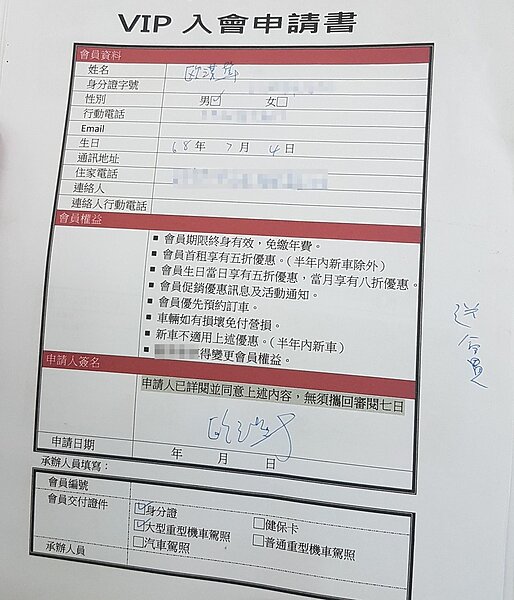 VIP 入會申請書
會員資料
姓名
身分證字號
性別 男☑ 女☐
行動電話
Email
生日 68年 7月 4日
通訊地址
住家電話
連絡人
連絡人行動電話
會員權益
▪ 會員期限終身有效,免繳年費。
▪ 會員首租享有五折優惠。(半年內新車除外)
▪ 會員生日當日享有五折優惠,當月享有八折優惠。
▪ 會員促銷優惠訊息及活動通知。
▪ 會員優先預約訂車。
▪ 車輛如有損壞免付營損。
▪ 新車不適用上述優惠。(半年內新車)
▪ 得變更會員權益。
送會員
申請人簽名
申請人已詳閱並同意上述內容,無須攜回審閱七日
申請日期 年 月 日
承辦人員填寫:
會員編號
會員交付證件 ☑身分證 ☐健保卡
☑大型重型機車駕照 ☐普通重型機車駕照
☐汽車駕照
承辦人員